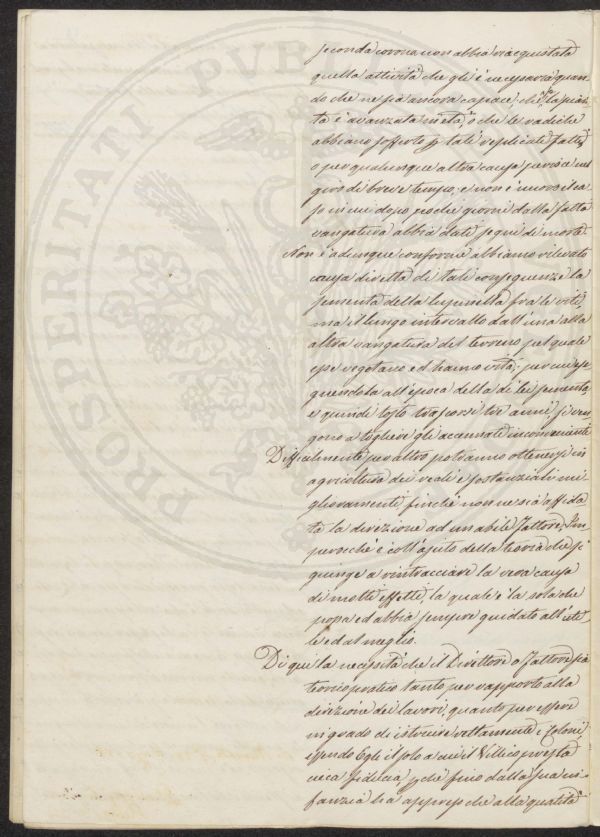 seconda corona non abbia riacquistata
quella attività che gli è necessaria quan
do che ne sia ancora capace; chè se la pian
ta è avanzata in età, o che le radiche
abbiano sofferto p tali replicati fatti,
o per qualunque altra causa perisce nel
giro di breve tempo; e non è nuovo il ca
so in cui dopo pochi giorni dalla fatta
vangatura abbia dati segni di morte
Non è adunque conforme abbiamo rilevato
causa diretta di tali conseguenze la
sementa della lupinella fra le viti,
ma il lungo intervallo dall'una alla
altra vangatura del terreno sul quale
esse vegetano ed hanno vita; per cui ese
guendola all'epoca della di lei sementa,
e quindi tosto trascorsi tre anni, si ven
gono a togliere gli accennati inconvenienti
Difficilmente per altro potranno ottenersi in
agricoltura dei reali e sostanziali mi
glioramenti finchè non ne sia affida
ta la direzione ad un abile Fattore. Im
perocchè è coll'ajuto della teoria che si
giunge a rintracciare la vera causa
di molti effetti, la quale è la sola che
possa ed abbia sempre guidato all'uti
le ed al meglio.
Di qui la necessità che il Direttore o Fattore sia
teorico pratico tanto per rapporto alla
direzione dei lavori, quanto per essere
in grado di istruire rettamente i Coloni,
essendo Egli il solo a cui il Villico presta
cieca fiducia, p chè fino dalla sua in
fanzia ha appreso che alla qualità
PROSPERITATI PVBLI